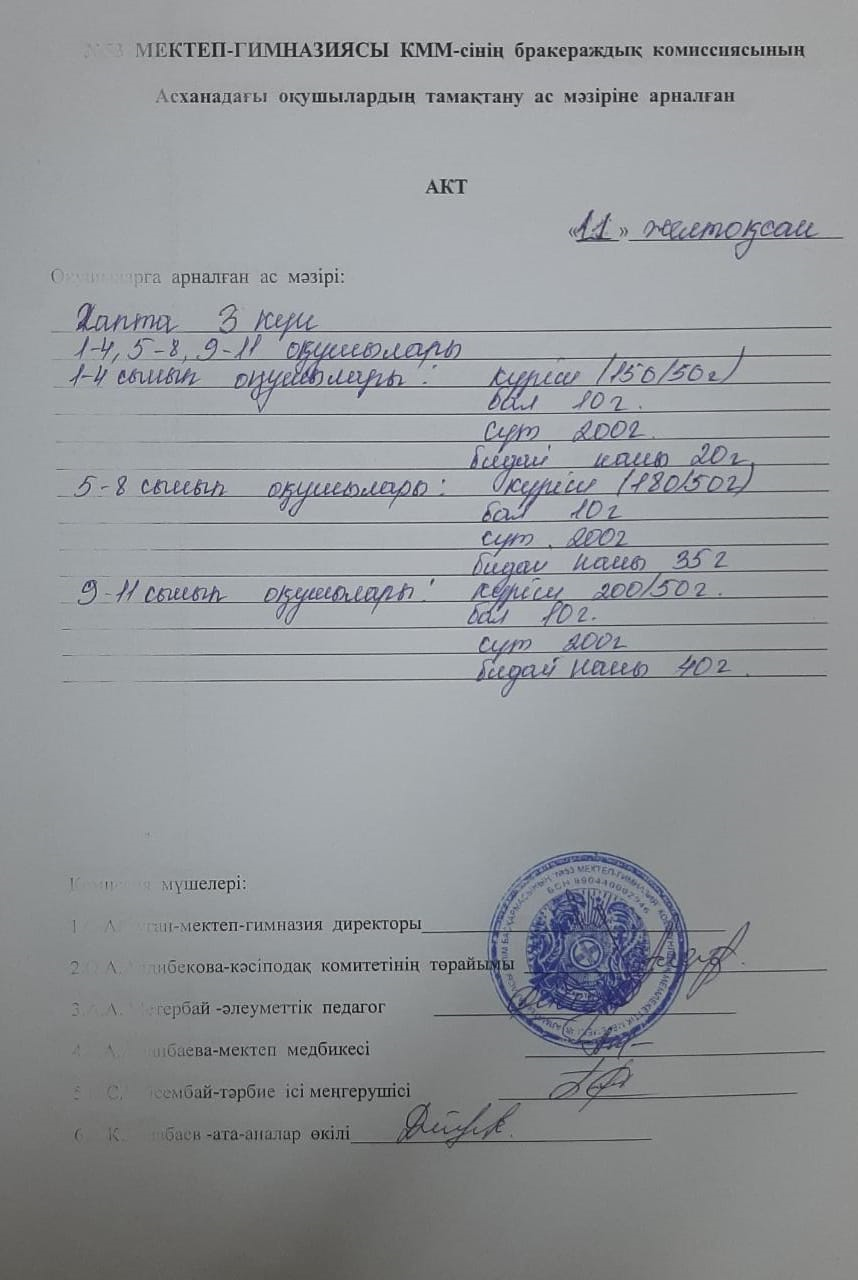 №53 МЕКТЕП-ГИМНАЗИЯСЫ КММ-сінің бракераждық комиссиясының
Асханадағы оқушылардың тамақтану ас мәзіріне арналған
АКТ
«11» желтоқсан
Оқушыларға арналған ас мәзірі:
Хапта 3 күн
1-4, 5-8, 9-11 оқушылары
1-4 сынып оқушылары: күріш (150/50г)
бал 10г.
сүт 200г.
бидай наны 20г.
5-8 сынып оқушылары: күріш (180/50г)
бал 10г
сүт 200г
бидай наны 35г
9-11 сынып оқушылары: күріш 200/50г.
бал 10г.
сүт 200г
бидай наны 40г.
Комиссия мүшелері:
1 -мектеп-гимназия директоры
2. -кәсіподақ комитетінің төрайымы
3. -әлеуметтік педагог
4 -мектеп медбикесі
5 -тәрбие ісі меңгерушісі
6 -ата-аналар өкілі
№53 МЕКТЕП-ГИМНАЗИЯ
БСН 990440002946